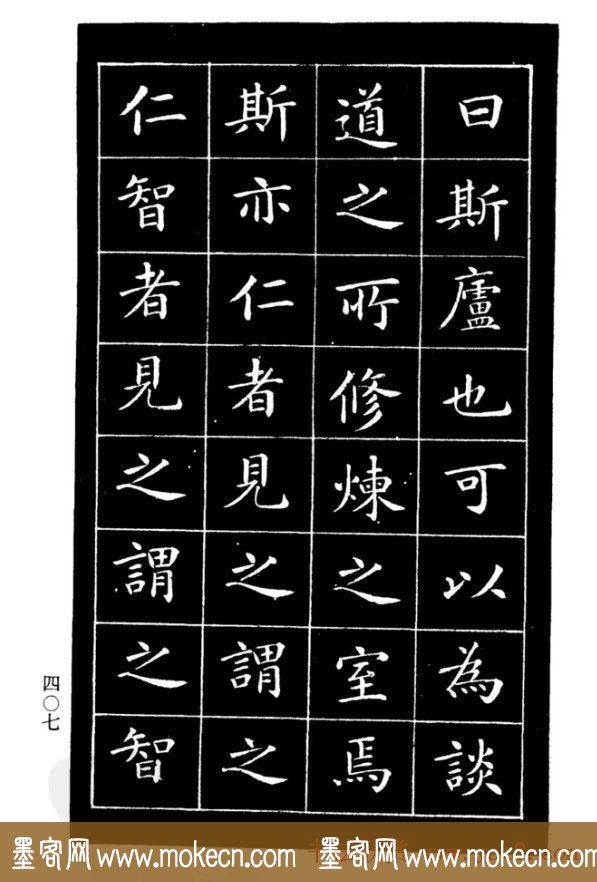 曰斯廬也可以為談
道之所修煉之室焉
斯亦仁者見之謂之
仁智者見之謂之智
四〇七
墨客网 www.mokecn.com 墨客网 www.mokecn.com